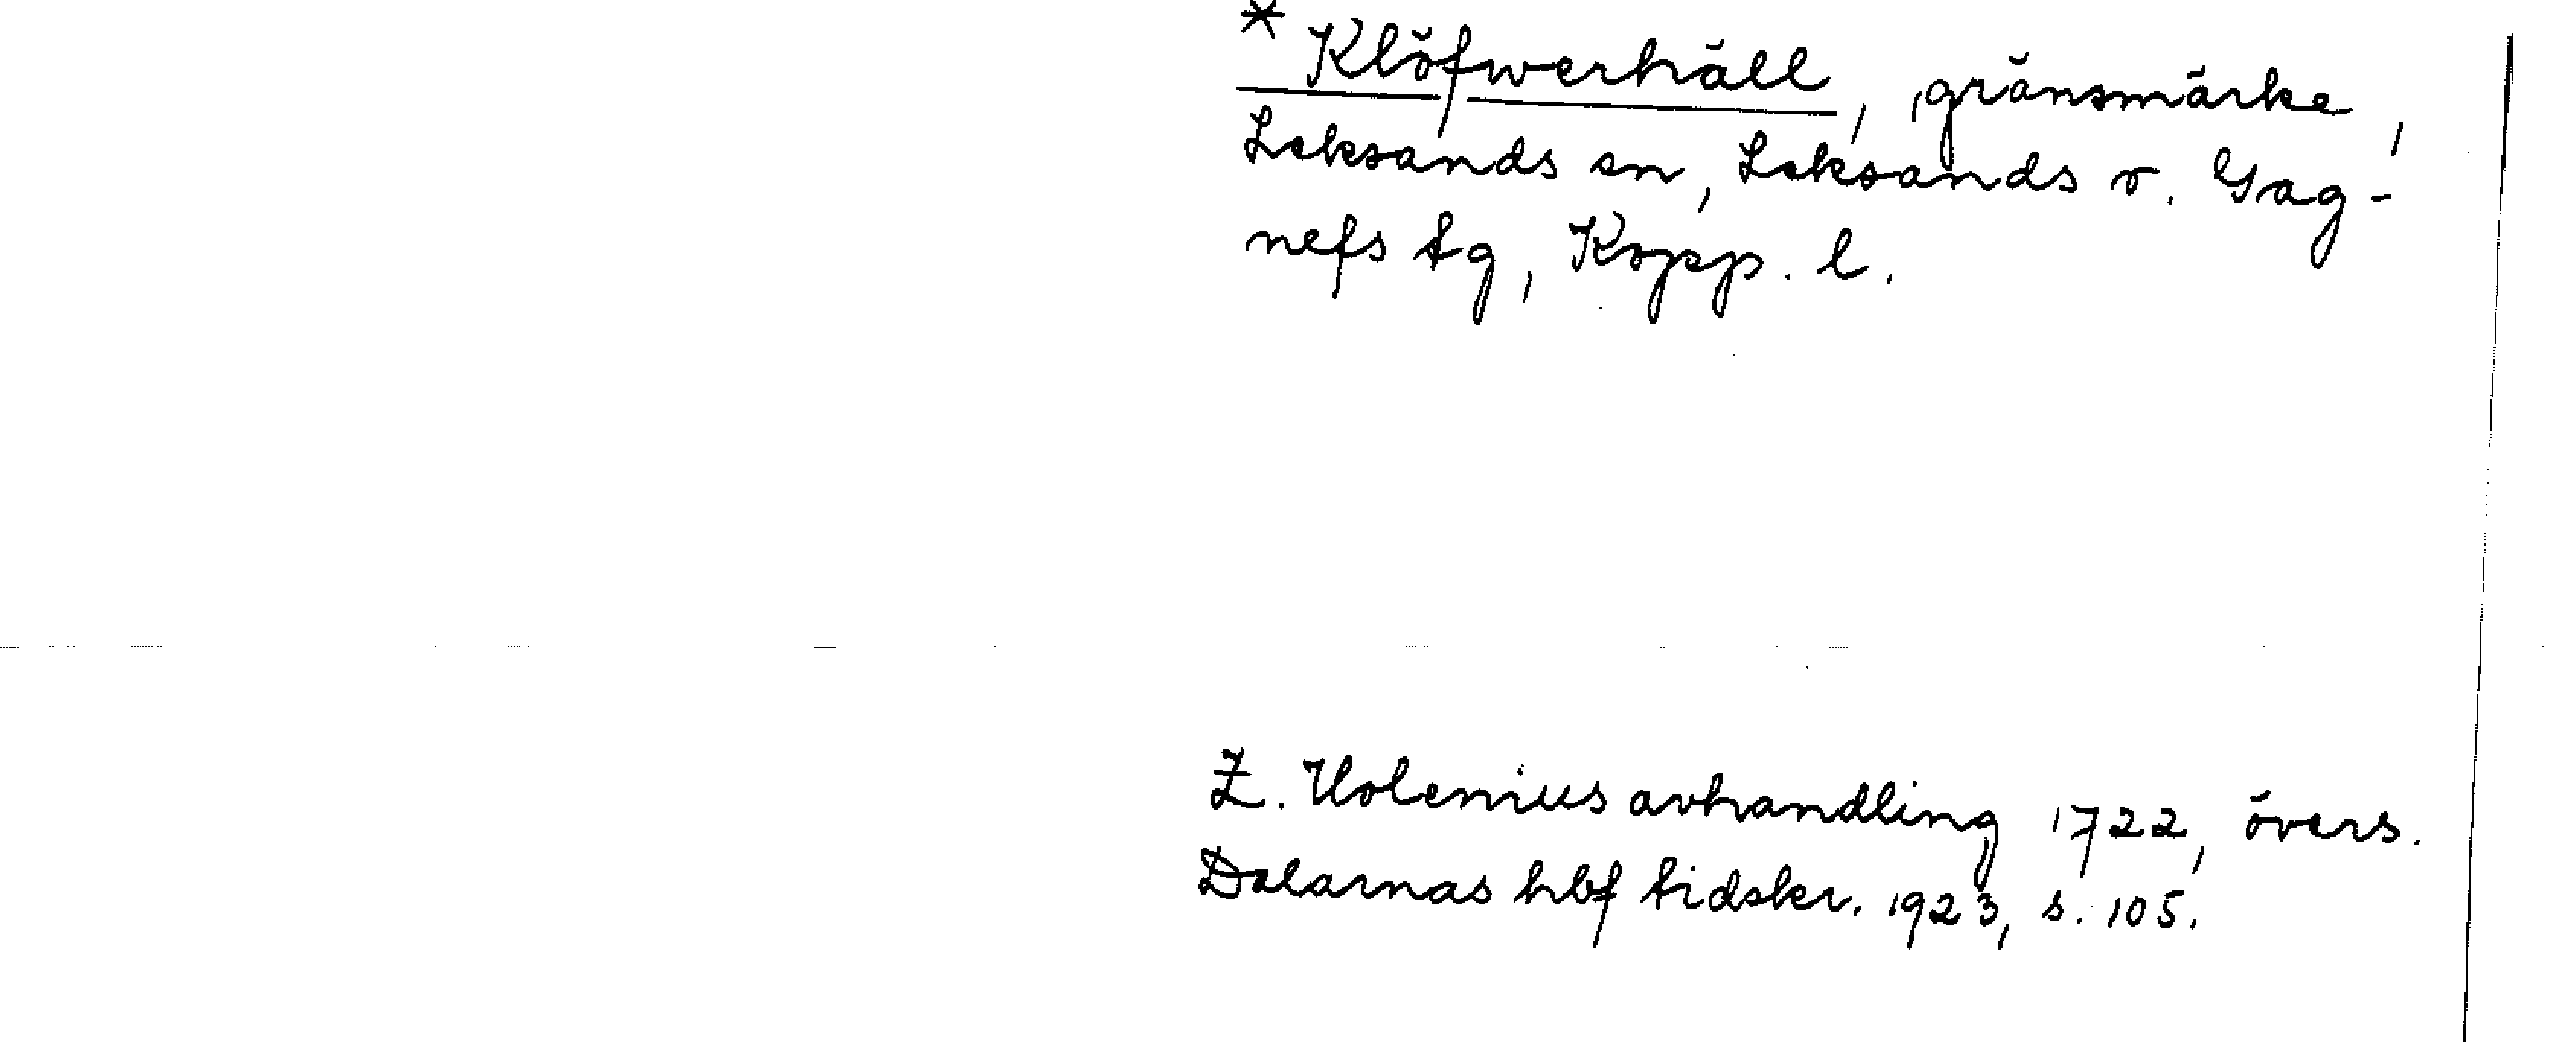 * Klöfwerhäll, gränsmärke,
Leksands sn, Leksands o. Gag-
nefs tg, Kopp. l.
Z. Holenius avhandling 1722, övers.
Dalarnas hbf tidskr. 1923, s. 105.